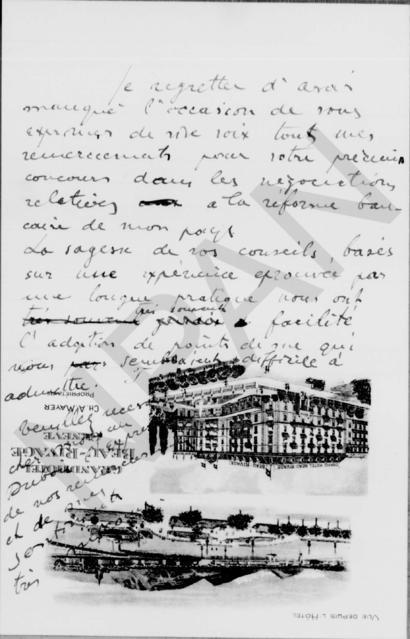 Je regretter d'avoir
manqué l'occasion de vous
exprimer de vive voix tout mes
remerciements pour votre précieux
concours dans les négociations
relatives a la réforme ban
caire de mon pays
La sagesse de vos conseils, basés
sur une experience eprouvée par
une longue pratique nous ont
très souvent facilité
l'adoption de points de vue qui
nous semblaient difficile à
admettre.
Veuillez
de nos
et de
très
GRAND HOTEL
BEAU-RIVAGE
GENÈVE
CH. A. MAYER
PROPRIETAIRE
GRAND HOTEL BEAU RIVAGE
VUE DEPUIS L'HÔTEL